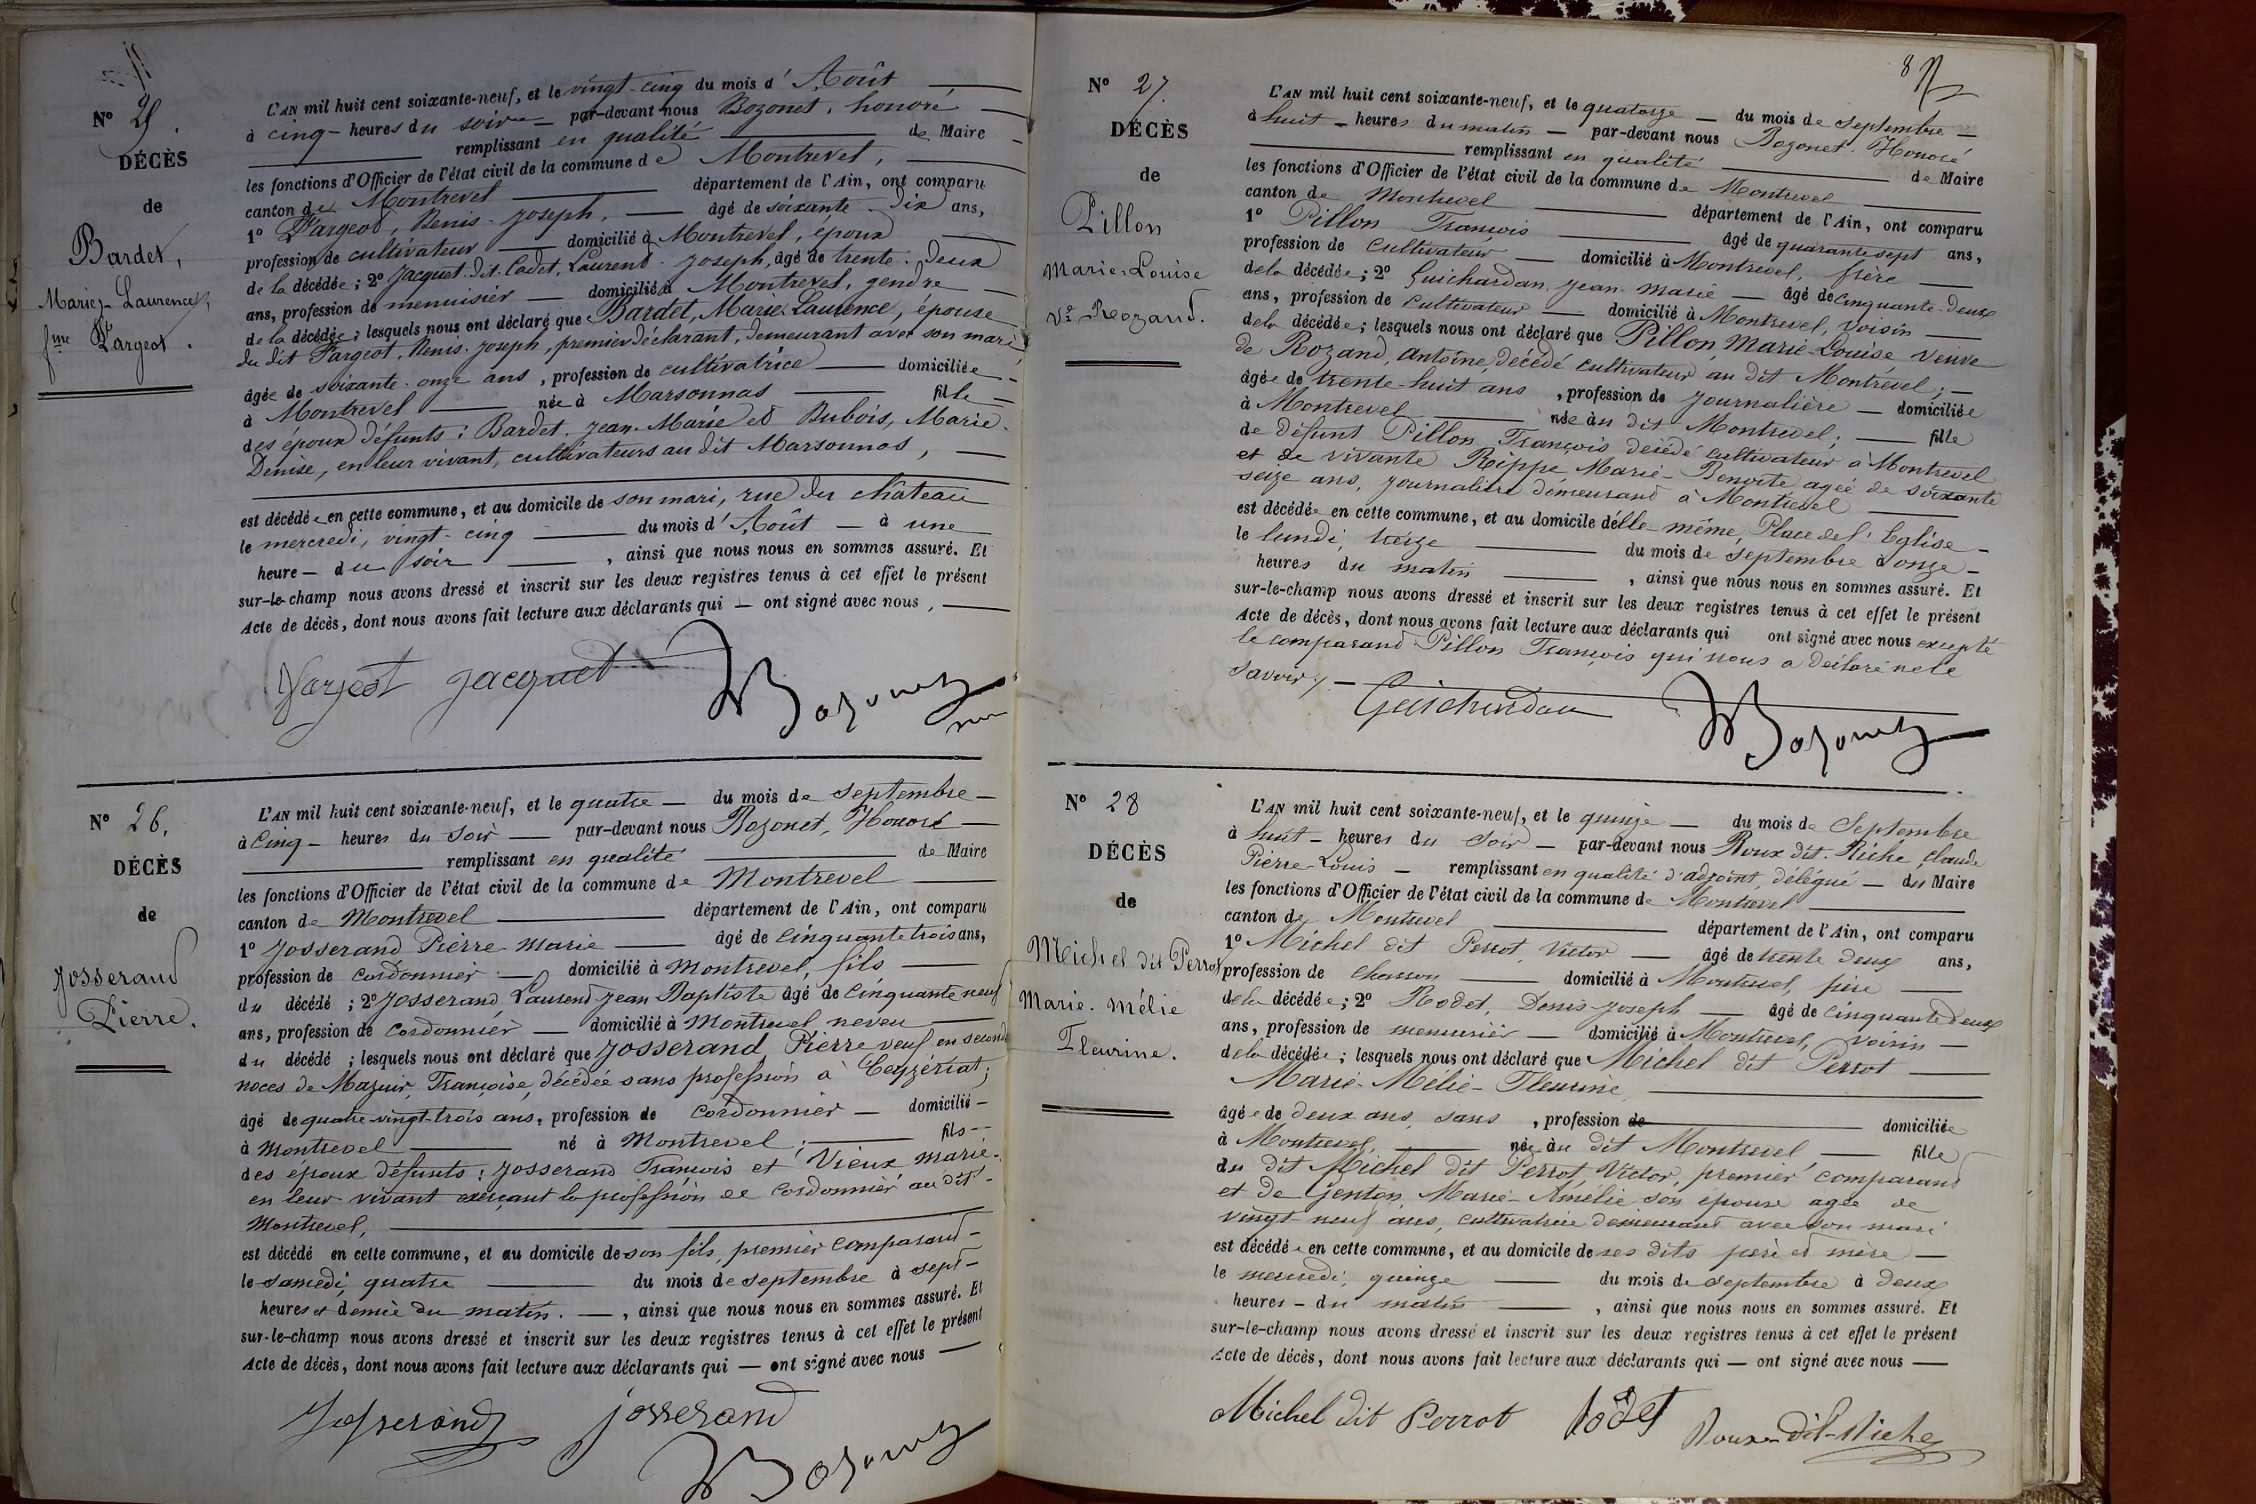 Nº 25.
DÉCÈS
de
Bardet,
Marie-Laurence,
fme Fargeot.
L'AN mil huit cent soixante-neuf, et le vingt-cinq du mois d'Août
à cinq heures du soir par-devant nous Bozonet, honoré
remplissant en qualité de Maire
les fonctions d'Officier de l'état civil de la commune de Montrevel,
canton de Montrevel département de l'Ain, ont comparu
1º Fargeot, Denis-Joseph, âgé de soixante-dix ans,
profession de cultivateur domicilié à Montrevel, époux
de la décédée; 2º Jacquet dit Cadet, Laurent-Joseph, âgé de trente-deux
ans, profession de menuisier domicilié à Montrevel, gendre
de la décédée; lesquels nous ont déclaré que Bardet, Marie Laurence, épouse
du dit Fargeot, Denis-Joseph, premier déclarant, demeurant avec son mari,
âgée de soixante-onze ans, profession de cultivatrice domiciliée
à Montrevel née à Marsonnas fille
des époux défunts: Bardet Jean-Marie et Dubois, Marie-
Denise, en leur vivant, cultivateurs au dit Marsonnas,
est décédée en cette commune, et au domicile de son mari, rue du château
le mercredi, vingt-cinq du mois d'Août à une
heure du soir, ainsi que nous nous en sommes assuré. Et
sur-le-champ nous avons dressé et inscrit sur les deux registres tenus à cet effet le présent
Acte de décès, dont nous avons fait lecture aux déclarants qui ont signé avec nous,
Fargeot Jacquet Bozonet
Nº 26.
DÉCÈS
de
Josserand
Pierre.
L'AN mil huit cent soixante-neuf, et le quatre du mois de septembre
à cinq heures du soir par-devant nous Bozonet, Honoré
remplissant en qualité de Maire
les fonctions d'Officier de l'état civil de la commune de Montrevel
canton de Montrevel département de l'Ain, ont comparu
1º Josserand Pierre Marie âgé de cinquante trois ans,
profession de cordonnier domicilié à Montrevel, fils
du décédé; 2º Josserand, Laurent Jean Baptiste âgé de cinquante neuf
ans, profession de cordonnier domicilié à Montrevel neveu
du décédé; lesquels nous ont déclaré que Josserand, Pierre veuf en seconde
noces de Mazuir, Françoise, décédée sans profession à Ceyzériat;
âgé de quatre-vingt-trois ans, profession de cordonnier domicilié
à Montrevel né à Montrevel; fils
des époux défunts: Josserand François et Vieux Marie-
en leur vivant exerçant la profession de cordonnier au dit
Montrevel,
est décédé en cette commune, et au domicile de son fils, premier comparant
le samedi, quatre du mois de septembre à sept
heures et demie du matin. , ainsi que nous nous en sommes assuré. Et
sur-le-champ nous avons dressé et inscrit sur les deux registres tenus à cet effet le présent
Acte de décès, dont nous avons fait lecture aux déclarants qui ont signé avec nous
Josserand Josserand
Bozonet
8
Nº 27.
DÉCÈS
de
Pillon
Marie-Louise
Ve Rozand.
L'AN mil huit cent soixante-neuf, et le quatorze du mois de septembre
à huit heures du matin par-devant nous Bozonet Honoré
remplissant en qualité de Maire
les fonctions d'Officier de l'état civil de la commune de Montrevel
canton de Montrevel département de l'Ain, ont comparu
1º Pillon François âgé de quarante sept ans,
profession de cultivateur domicilié à Montrevel, frère
de la décédée; 2º Guichardan Jean Marie âgé de cinquante-deux
ans, profession de cultivateur domicilié à Montrevel, voisin
de la décédée; lesquels nous ont déclaré que Pillon Marie-Louise, veuve
de Rozand, Antoine, décédé cultivateur au dit Montrevel;
âgée de trente-huit ans, profession de journalière domiciliée
à Montrevel née au dit Montrevel; fille
de défunt Pillon François décédé cultivateur à Montrevel
et de vivante Rippe Marie-Benoite agée de soixante
seize ans, journalière demeurant à Montrevel
est décédée en cette commune, et au domicile d'elle même, Place de l'Eglise
le lundi, treize du mois de septembre à onze
heures du matin, ainsi que nous nous en sommes assuré. Et
sur-le-champ nous avons dressé et inscrit sur les deux registres tenus à cet effet le présent
Acte de décès, dont nous avons fait lecture aux déclarants qui ont signé avec nous excepté
le comparant Pillon François qui nous a déclaré ne le
savoir
Guichardan Bozonet
Nº 28
DÉCÈS
de
Michel dit Perrot
Marie-Mélie
Fleurine.
L'AN mil huit cent soixante-neuf, et le quinze du mois de Septembre
à huit heures du soir par-devant nous Roux dit Riche, Claude
Pierre-Louis remplissant en qualité d'adjoint, délégué du Maire
les fonctions d'Officier de l'état civil de la commune de Montrevel
canton de Montrevel département de l'Ain, ont comparu
1º Michel dit Perrot, Victor âgé de trente deux ans,
profession de charron domicilié à Montrevel, père
de la décédée; 2º Rodet, Denis-Joseph âgé de cinquante deux
ans, profession de menuisier domicilié à Montrevel, voisin
de la décédée; lesquels nous ont déclaré que Michel dit Perrot
Marie-Mélie-Fleurine
âgée de deux ans, sans, profession de domiciliée
à Montrevel, née au dit Montrevel, fille
du dit Michel dit Perrot, Victor, premier comparant
et de Genton, Marie-Amélie son épouse agée de
vingt-neuf ans, cultivatrice demeurant avec son mari
est décédée en cette commune, et au domicile de ses dits père et mère
le mercredi, quinze du mois de septembre à deux
heures du matin, ainsi que nous nous en sommes assuré. Et
sur-le-champ nous avons dressé et inscrit sur les deux registres tenus à cet effet le présent
Acte de décès, dont nous avons fait lecture aux déclarants qui ont signé avec nous
Michel dit Perrot Rodet Roux-dit-Riche